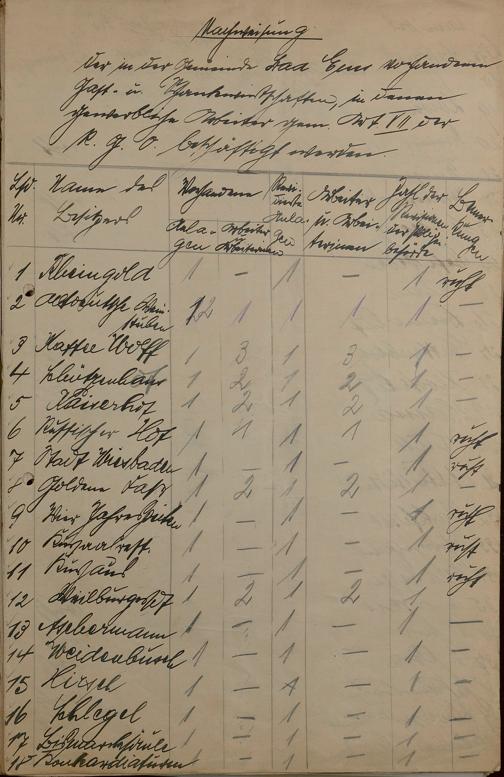 Nachweisung
der in der Gemeinde Bad Ems vorhandenen
Gast- u. Schankwirtschaften, in denen
gewerbliche Arbeiter gem. Art. VII der
R. G. O. beschäftigt werden.
Lfd. Nr. Name des Besitzers Vorhandene Anlagen Arbeiter Arbeiterinnen Revidierte Anlagen Arbeiter u. Arbeiterinnen Zahl der Revisionen der Polizeibehörde Bemerkungen
1 Rheingold 1 — 1 — 1 ruht
2 Altdeutsche Weinstuben 1 1 1 1
3 Kaffee Wolff 1 3 1 3 1 —
4 Schützenhaus 1 2 1 2 1 —
5 Kaiserhof 1 2 1 2 1 —
6 Russischer Hof 1 1 1 1 1 ruht
7 Stadt Wiesbaden 1 — 1 — 1 ruht
8 Goldene Fass 1 2 1 2 1 —
9 Vier Jahreszeiten 1 — 1 — 1 ruht
10 Kursaalrest. 1 — 1 — 1 ruht
11 Kurhaus 1 — 1 — 1 ruht
12 Weilburger 1 2 1 2 1 —
13 Aschermann 1 — 1 — 1 —
14 Weidenbusch 1 — 1 — 1 —
15 Hirsch 1 — 1 — 1 —
16 Schlegel 1 — 1 — 1 —
17 Bismarcksäule 1 — 1 — 1 —
18 1 — 1 — 1 —